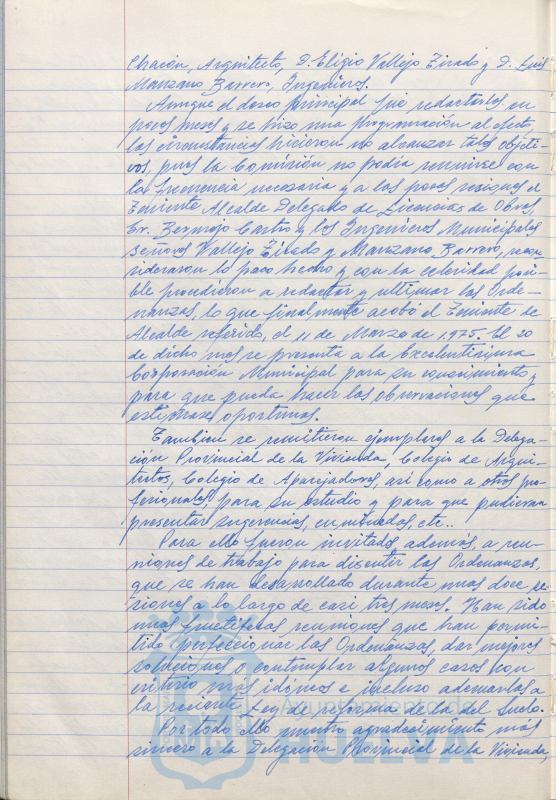 Chacón, Arquitecto, D. Eligio Vallejo Tirado y D. Luis
Manzano Barrero, Ingenieros.
Aunque el deseo principal fué redactarlas en
pocos meses y se hizo una programación al efecto,
las circunstancias hicieron no alcanzar tales objeti-
vos, pues la Comisión no podía reunirse con
la frecuencia necesaria y a las pocas sesiones el
Teniente Alcalde Delegado de Licencias de Obras,
Sr. Bermejo Castro y los Ingenieros Municipales
Señores Vallejo Tirado y Manzano Barrero, recon
sideraron lo poco hecho y con la celeridad posi-
ble procedieron a redactar y ultimar las Orde-
nanzas, lo que finalmente acabó el Teniente de
Alcalde referido, el 11 de Marzo de 1.975. El 20
de dicho mes se presenta a la Excelentísima
Corporación Municipal para su conocimiento y
para que pueda hacer las observaciones que
estimase oportunas.
También se remitieron ejemplares a la Delega-
ción Provincial de la Vivienda, Colegio de Arqui-
tectos, Colegio de Aparejadores, así como a otros pro-
fesionales, para su estudio y para que pudieran
presentar sugerencias, enmiendas, etc..
Para ello fueron invitados además, a reu-
niones de trabajo para discutir las Ordenanzas,
que se han desarrollado durante unas doce se-
siones a lo largo de casi tres meses. Han sido
unas fructíferas reuniones que han permi-
tido perfeccionar las Ordenanzas, dar mejores
soluciones o contemplar algunos casos con
criterio más idóneo e incluso ademarlas a
la reciente Ley de reforma de la del Suelo.
Por todo ello nuestro agradecimiento más
sincero a la Delegación Provincial de la Vivienda,
Ayuntamiento de
HUELVA